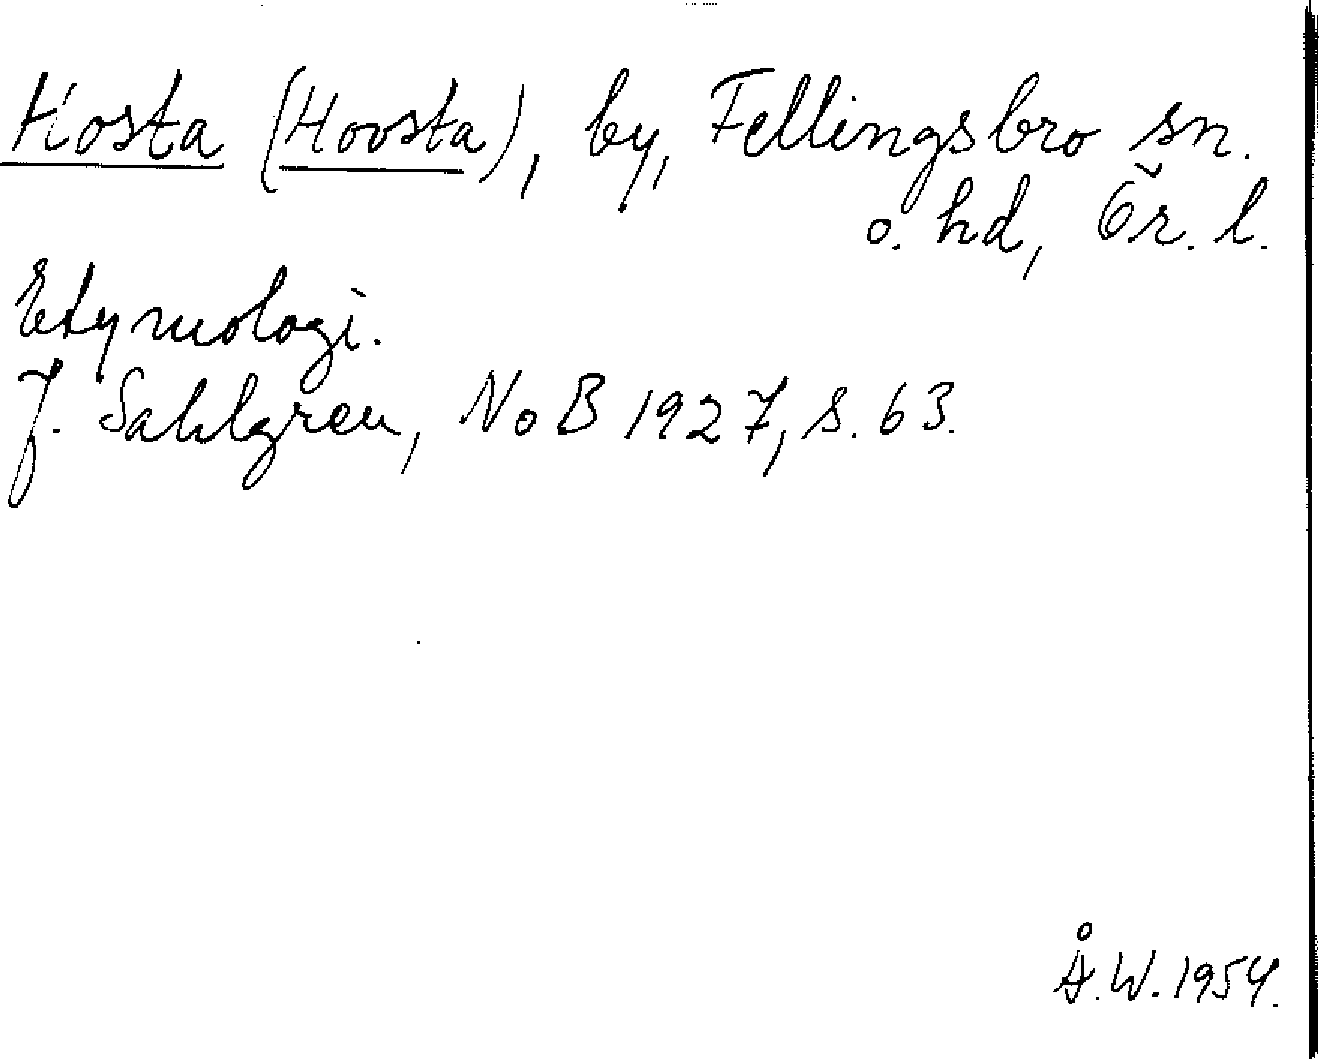 Hosta (Hovsta), by, Fellingsbro sn.
o. hd, Ör. l.
Etymologi.
J. Sahlgren, NoB 1927, s. 63.
Å.W. 1954.